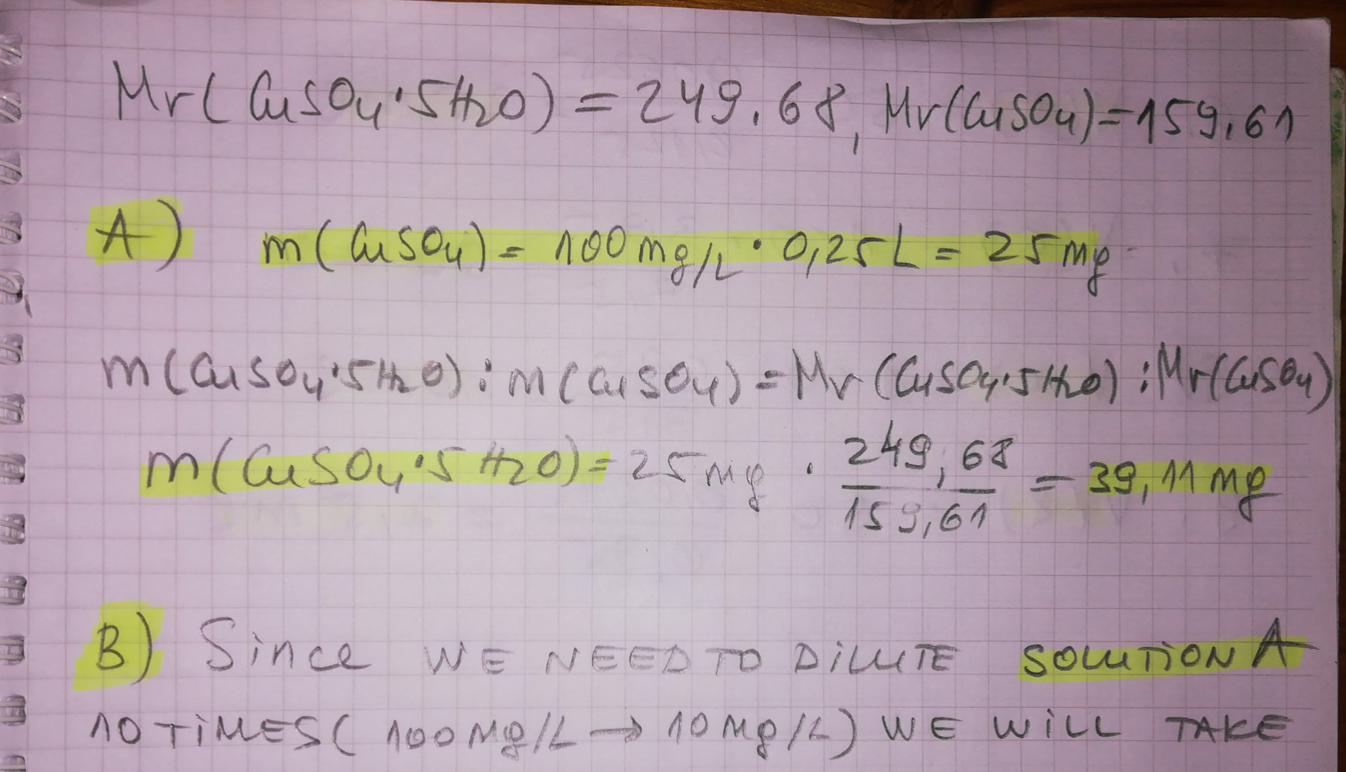 Mr(CuSO4·5H2O) = 249.68, Mr(CuSO4)=159,61
A) m(CuSO4)= 100mg/L · 0,25L = 25mg
m(CuSO4·5H2O):m(CuSO4)=Mr(CuSO4·5H2O):Mr(CuSO4)
m(CuSO4·5H2O)= 25mg · 249,68/159,61 = 39,11mg
B) Since WE NEED TO DILUTE SOLUTION A
10 TIMES( 100Mg/L → 10Mg/L) WE WILL TAKE